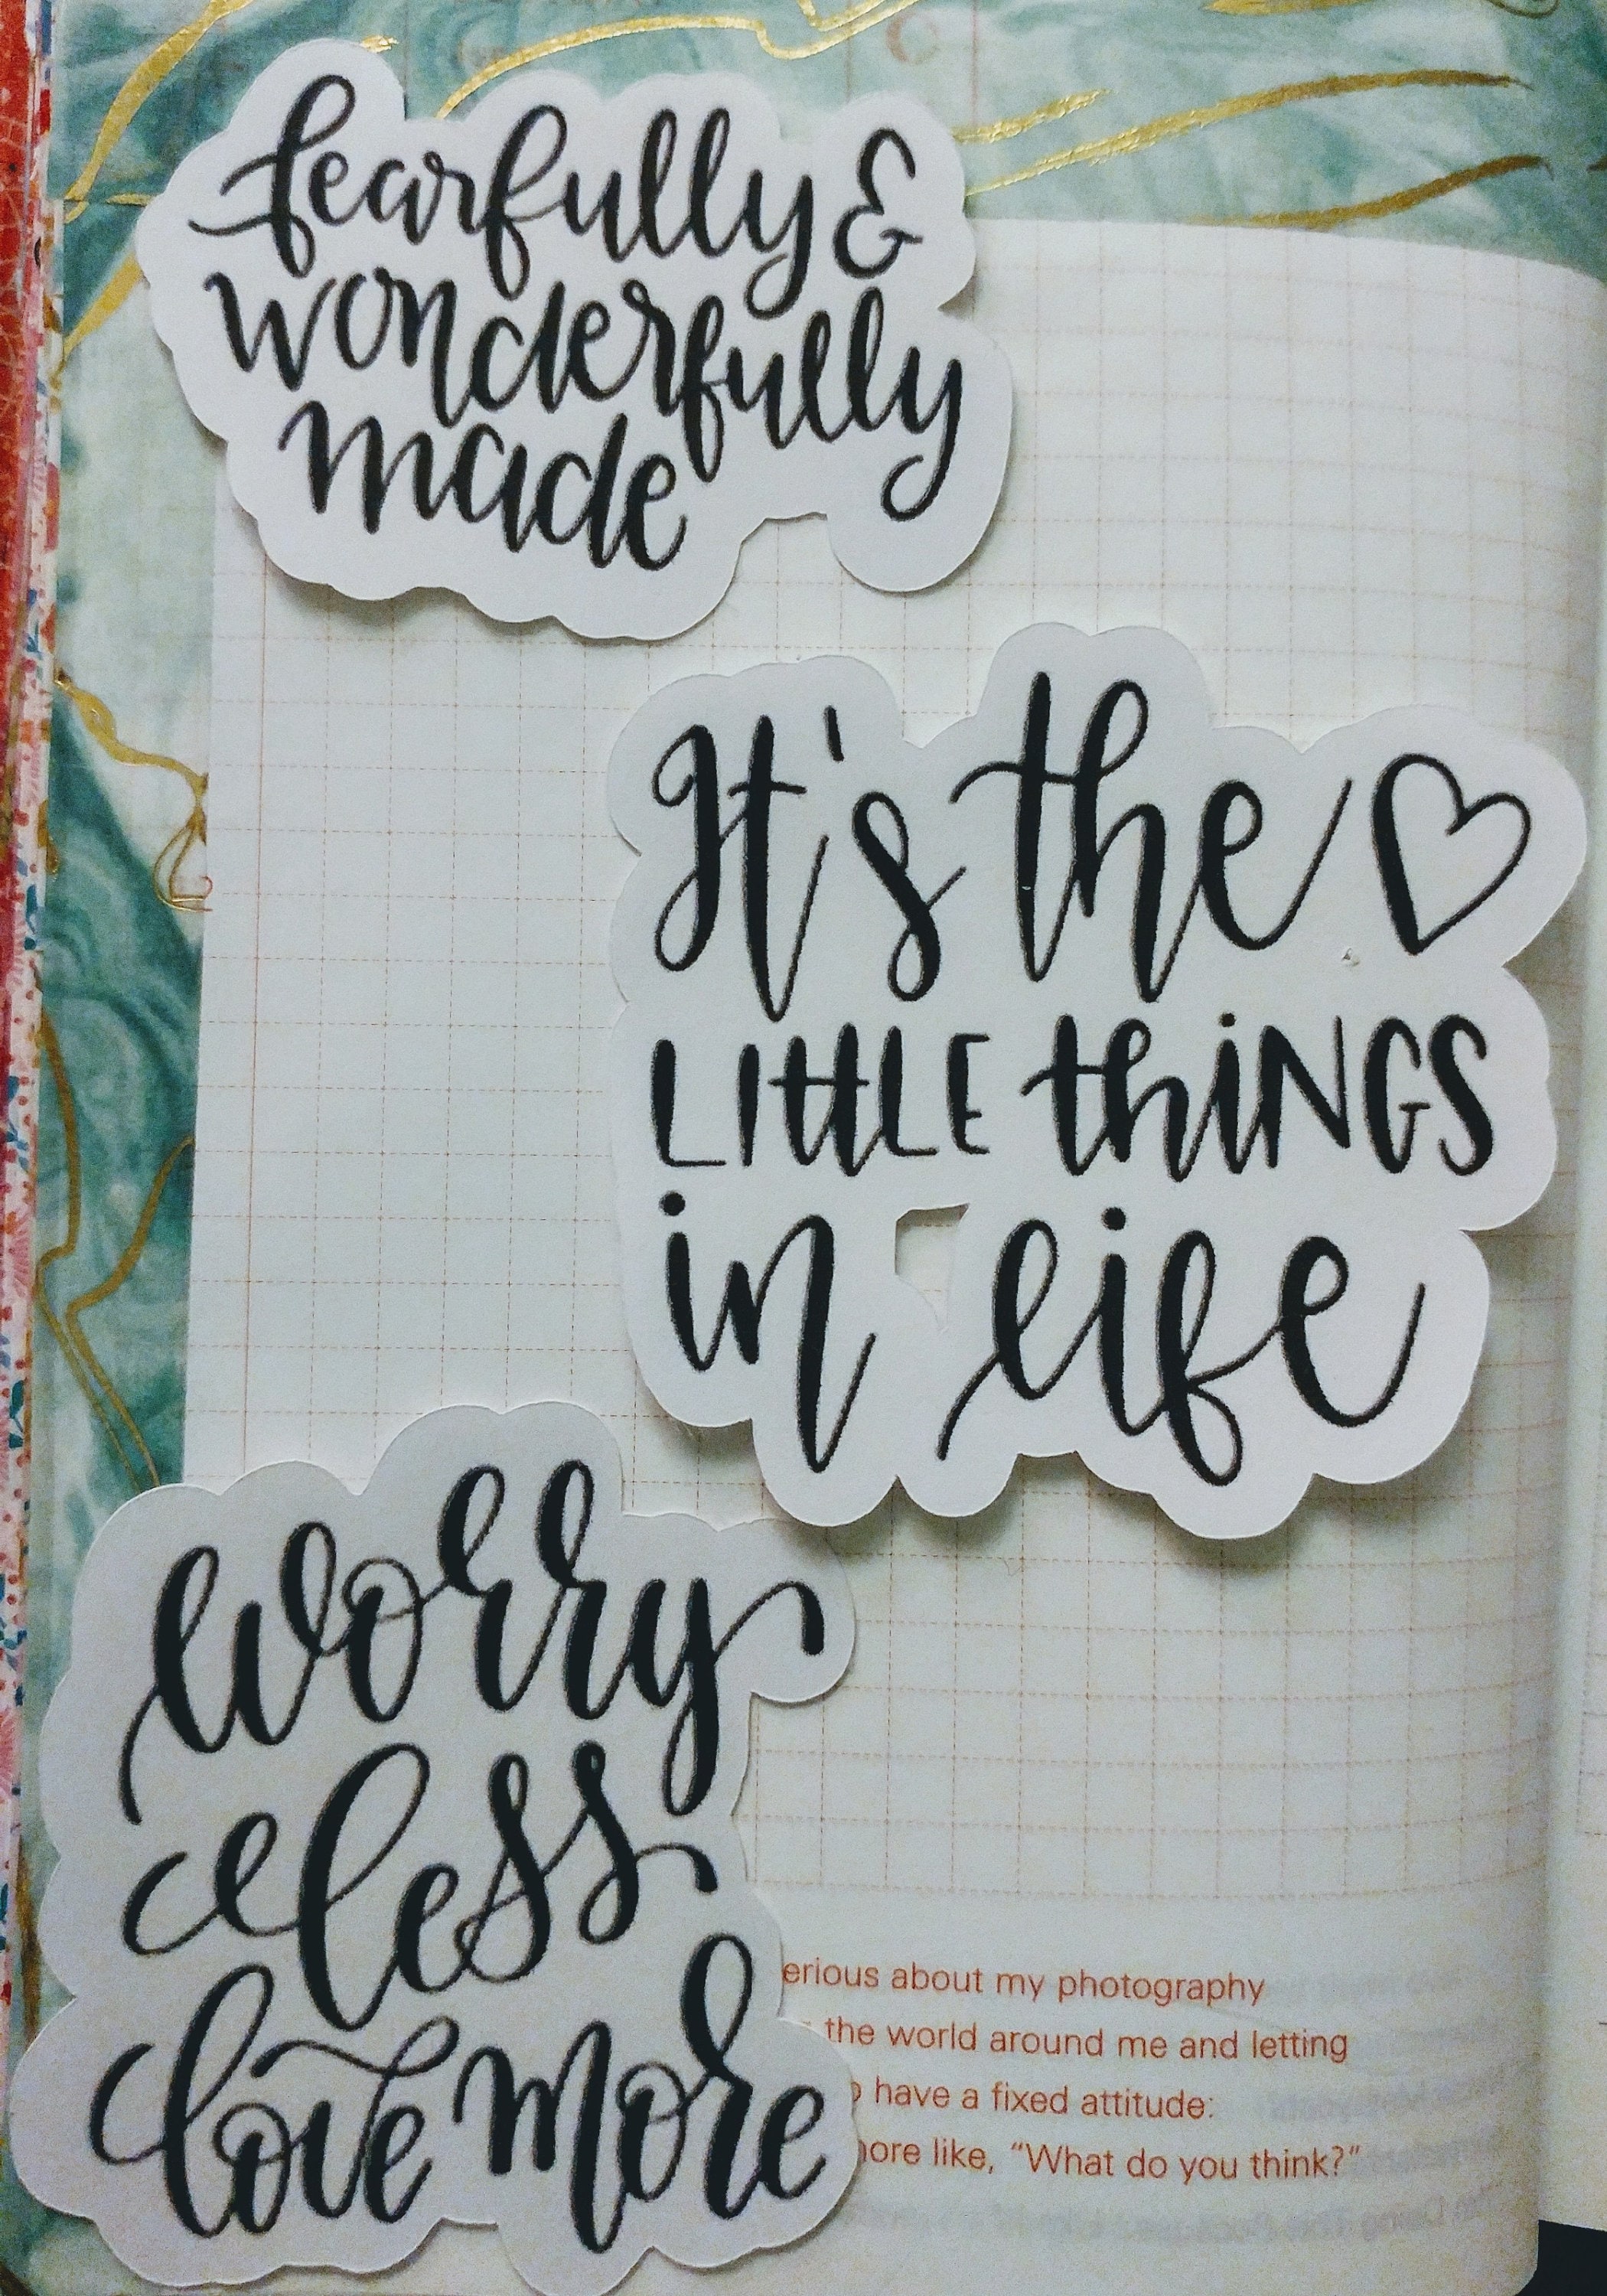 fearfully &
wonderfully
made
It's the
LITTLE thiNGS
in life
worry
less
love more
erious about my photography
the world around me and letting
have a fixed attitude:
more like, “What do you think?”